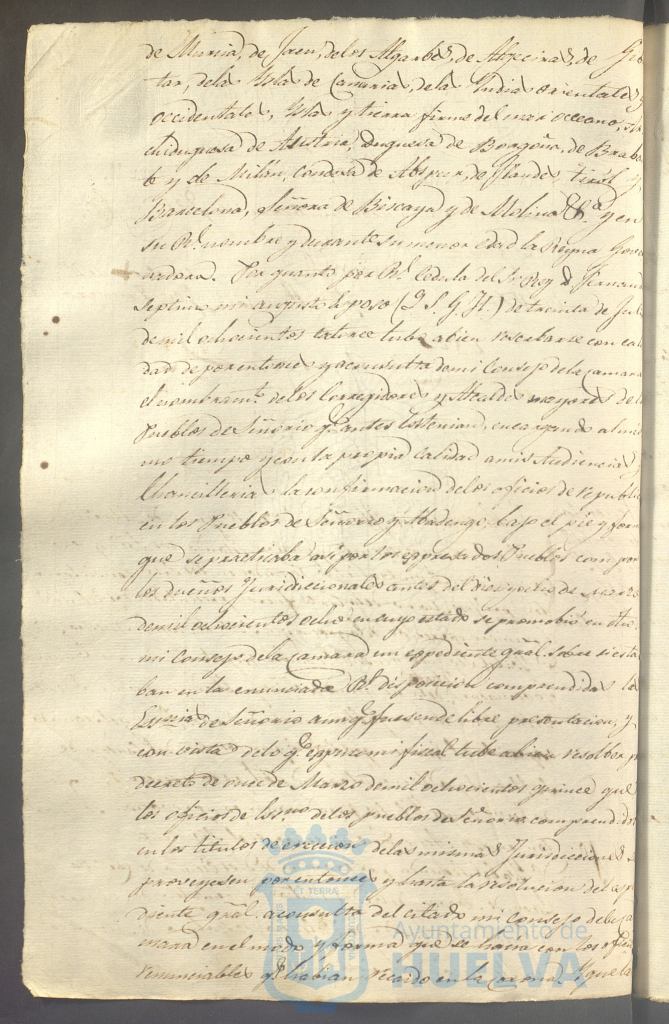 de Murcia, de Jaen, de los Algarbes, de Algeciras, de Gi
tar, de las Yslas de Canaria, de las Yndias orientales y
occidentales, Yslas y tierra firme del mar occeano, Ar
chiduquesa de Austria, Duquesa de Borgoña, de Braba
te y de Milan, Condesa de Abspur, de Flandes, tirol y
Barcelona, Señora de Biscaya y de Molina &ª y en
su Rl. nombre y durante su menor edad la Reyna Gover
nadora. Por quanto por Rl. Cedula del Sr. Rey D. Fernando
septimo mi augusto Esposo (Q. S. G. H.) de treinta de Jul
de mil ochocientos catorce tubo a bien reserbarse con cali
dad de por entonces y a consulta de mi Consejo de la camara
el nombramto. de los Corregidores y Alcaldes mayores de los
Pueblos de Señorio q. antes los tenian, encargando al mis
mo tiempo y con la propia calidad a mis Audiencias y
Chancillerias la confirmacion de los oficios de republi
en los Pueblos de Señorio y Abadengo, bajo el pie y form
que se practicaba asi por los expresados Pueblos como por
los dueños Juridiccionales antes del diez y ocho de Marzo
de mil ochocientos ocho en cuyo estado se promobió en dho.
mi Consejo de la Camara un expediente gral. sobre si esta
ban en la enunciada Rl. disposicion comprendidas las
de Señorio aunq. fuesen de libre presentacion, y
con vista de lo q. expuso mi fiscal tube a bien resolber p
decreto de once de Marzo de mil ochocientos quince que
los oficios de de los pueblos de Señorio comprendidos
en los titulos de erecion de las mismas Juridicciones se
proveyesen por entonces y hasta la resolucion del espe
diente gral. a consulta del citado mi consejo de la ca
mara en el modo y forma que se hacia con los oficios
renunciables q. habian recaido en la corona. Y que la
Ayuntamiento de
HUELVA